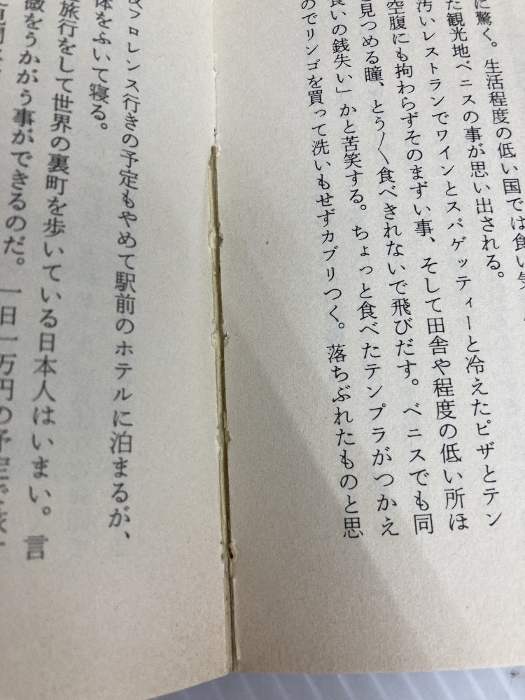 に驚く。生活程度の低い国では食い気
た観光地ベニスの事が思い出される。
汚いレストランでワインとスパゲッティーと冷えたピザとテン
空腹にも拘わらずそのまずい事、そして田舎や程度の低い所ほ
見つめる瞳、とう〳〵食べきれないで飛びだす。ベニスでも同
食いの銭失い」かと苦笑する。ちょっと食べたテンプラがつかえ
のでリンゴを買って洗いもせずカブリつく。落ちぶれたものと思
フロレンス行きの予定もやめて駅前のホテルに泊まるが、
体をふいて寝る。
旅行をして世界の裏町を歩いている日本人はいまい。言
をうかがう事ができるのだ。一日一万円の予定で